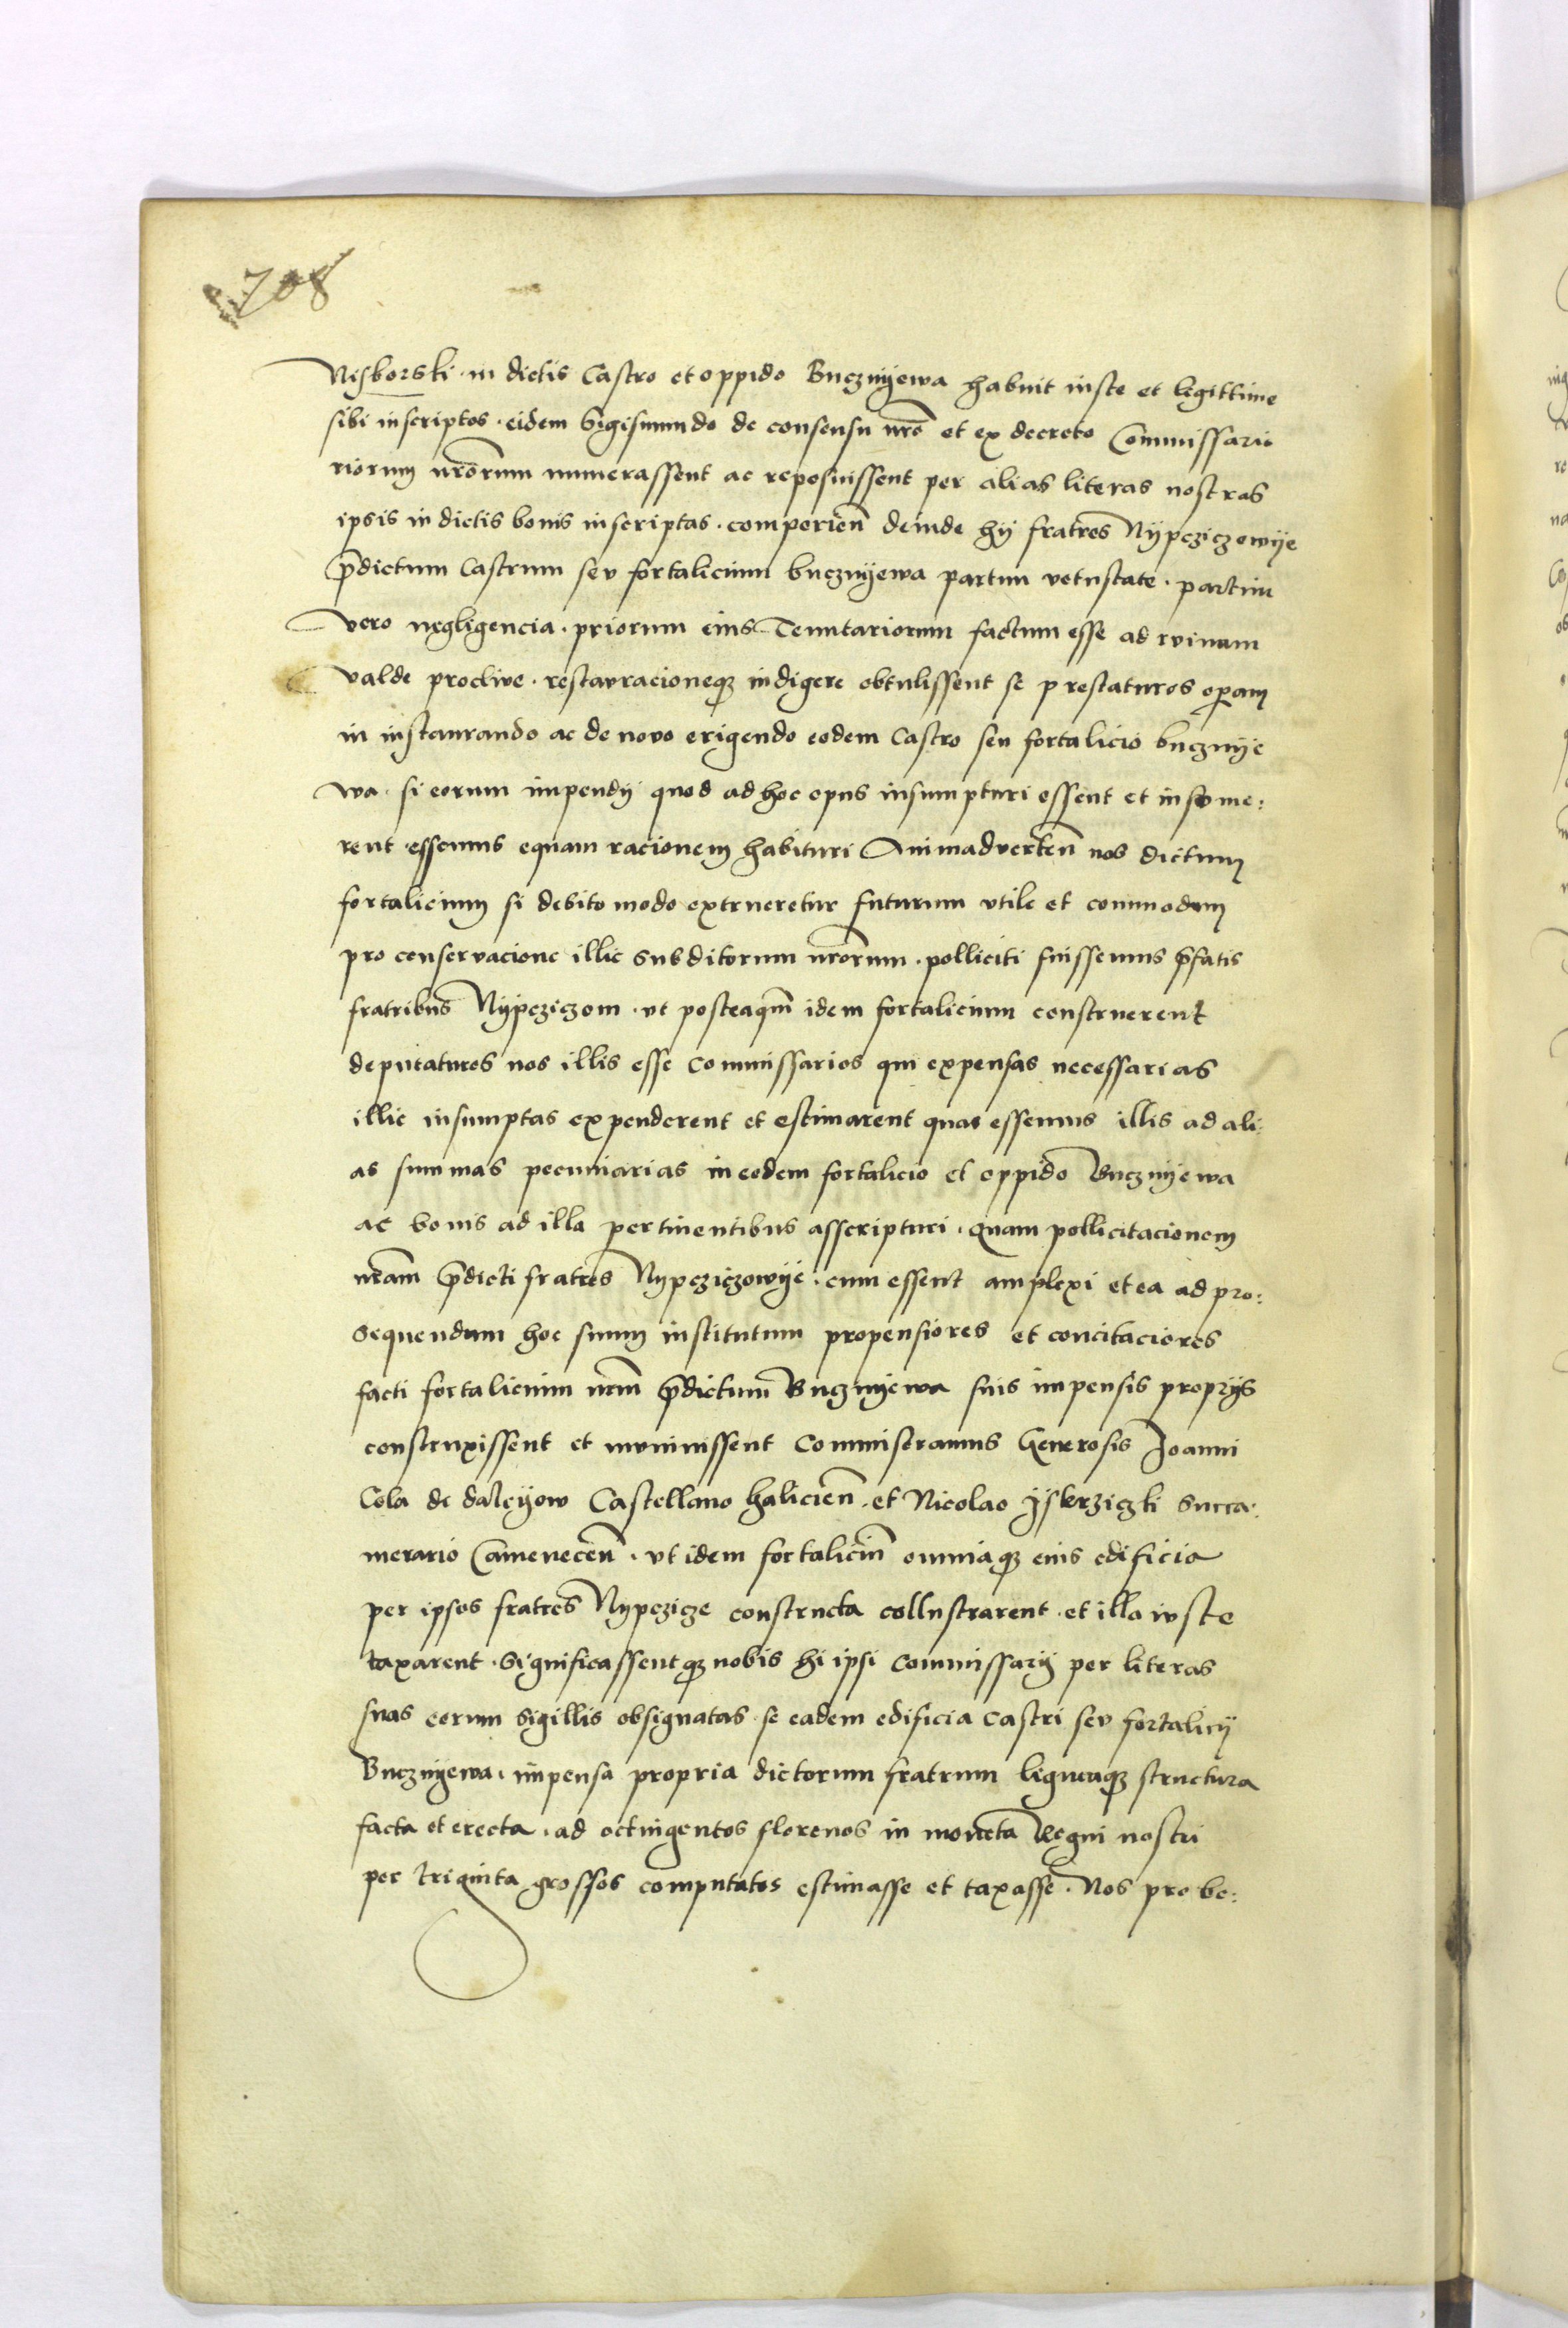 708
Nisborski in dictis Castro et oppido Bucznyewa habuit iuste et legittime
sibi inscriptos. eidem Sigismundo de consensu nrō et ex decreto Commissario
riorum nrōrum numerassent ac reposuissent per alias literas nostras
ipsis in dictis bonis inscriptas. comperien̄ deinde hij fratres Nypcziczowye
p̄dictum Castrum seu fortalicium bucznyewa partim vetustate. partim
vero negligencia. priorum eius Tenutariorum factum esse ad ruinam
valde proclive. restauracioneqꝫ indigere obtulissent se prestaturos op̄am
in instaurando ac de novo erigendo eodem Castro seu fortalicio bucznye
wa. si eorum impendij quod ad hoc opus insumpturi essent et insume:
rent. essemus equam racionem habituri Animadverten̄ nos dictum
fortalicium si debito modo extrueretur futurum utile et commodum
pro conservacione illic subditorum nrōrum. polliciti fuissemus p̄fatis
fratribus Nypcziczom. ut posteaqm̄ idem fortalicium construerent
deputaturos nos illis esse commissarios qui expensas necessarias
illic insumptas expenderent et estimarent quas essemus illis ad ali:
as summas pecuniarias in eodem fortalicio et oppido Bucznyewa
ac bonis ad illa pertinentibus asscripturi. quam pollicitacionem
nrām p̄dicti fratres Nypcziczowye. cum essent amplexi et ea ad pro:
sequendum hoc suum institutum propensiores et concitaciores
facti fortalicium nrm̄ p̄dictum Bucznyewa suis impensis proprijs
construxissent et munivissent Commiseramus Generosis Joanni
Cola de daleyow Castellano halicien̄. et Nicolao Jskrziczki Succa:
merario Camenecen̄. ut idem fortalicīm omniaqꝫ eius edificia
per ipsos fratres Nypczicze constructa collustrarent. et illa iuste
taxarent. Significassentqꝫ nobis hi ipsi commissarij per literas
suas eorum sigillis obsignatas se eadem edificia castri seu fortalicij
Bucznyewa. impensa propria dictorum fratrum ligneaqꝫ structura
facta et erecta. ad octingentos florenos in moneta Regni nostri
per triginta grossos computatos estimasse et taxasse. Nos pro be: